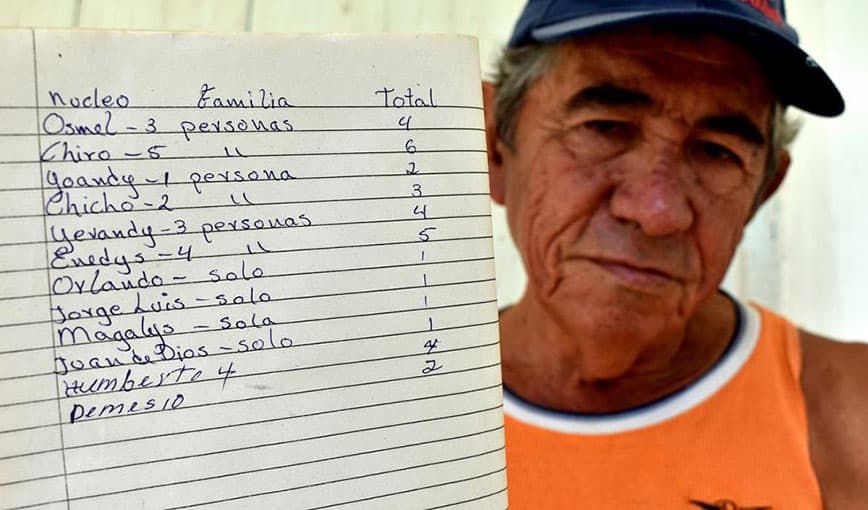 nucleo Familia Total
Osmel - 3 personas 4
Chiro - 5 " 6
Yoandy - 1 persona 2
Chicho - 2 " 3
Yevandy - 3 personas 4
Enedys - 4 " 5
Orlando - solo 1
Jorge Luis - solo 1
Magalys - sola 1
Juan de Dios - solo 1
Humberto 4 4
Demesio 2